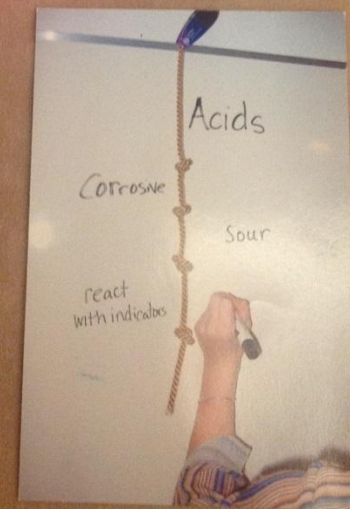 Acids
Corrosive
Sour
react
with indicators